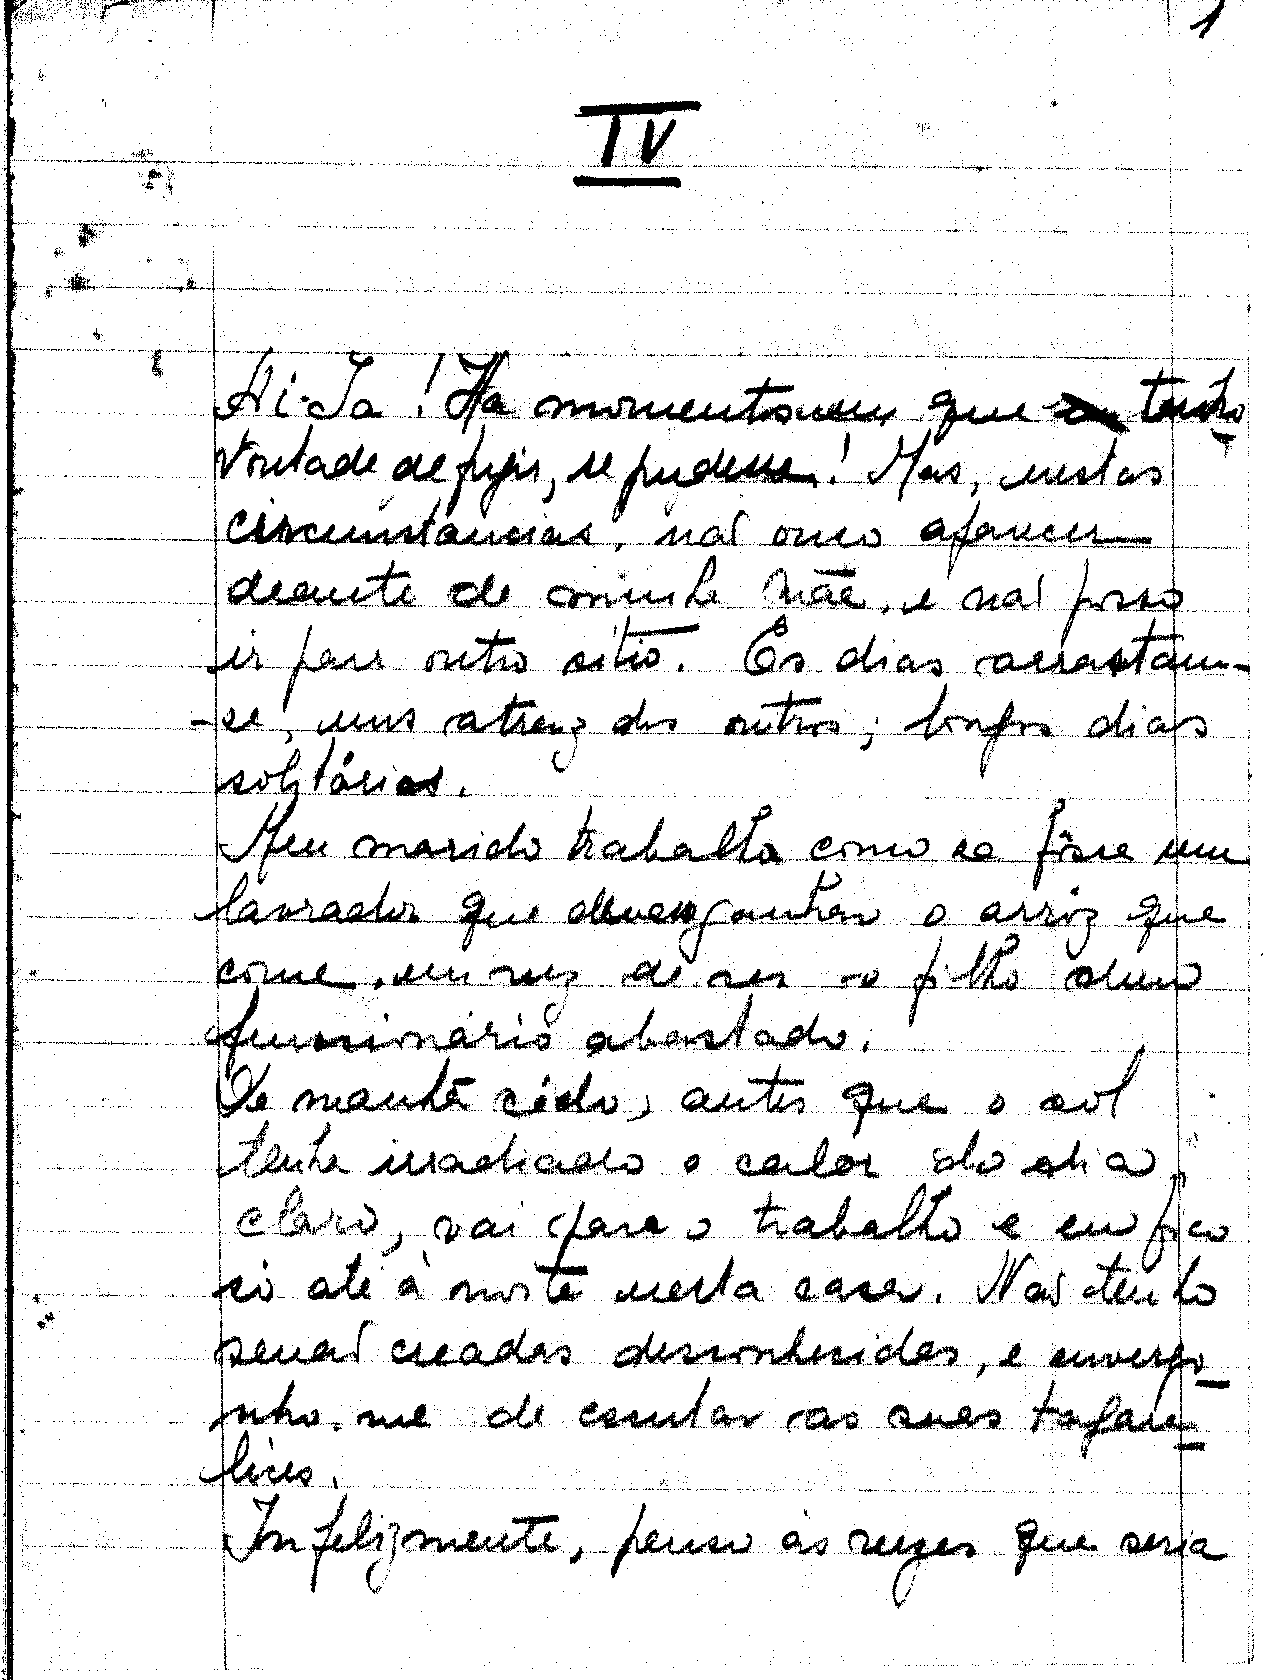 1
IV
Ai-Ja! Ha momentos em que tenho
vontade de fugir, se pudesse! Mas, nestas
circunstancias, não ouso aparecer
deante de minha Mãe, e não posso
ir para outro sitio. Os dias arrastam-
-se, uns atraz dos outros; longos dias
solitários.
Meu marido trabalha como se fôsse um
lavrador que deve ganhar o arroz que
come, em vez de ser o filho dum
funcionário abastado.
De manhã cêdo, antes que o sol
tenha irradiado o calor do dia
claro, vai para o trabalho e eu fico
só até à noite nesta casa. Não tenho
senão creadas desconhecidas, e envergo-
nho-me de escutar as suas tagare-
lices.
Infelizmente, penso ás vezes que seria